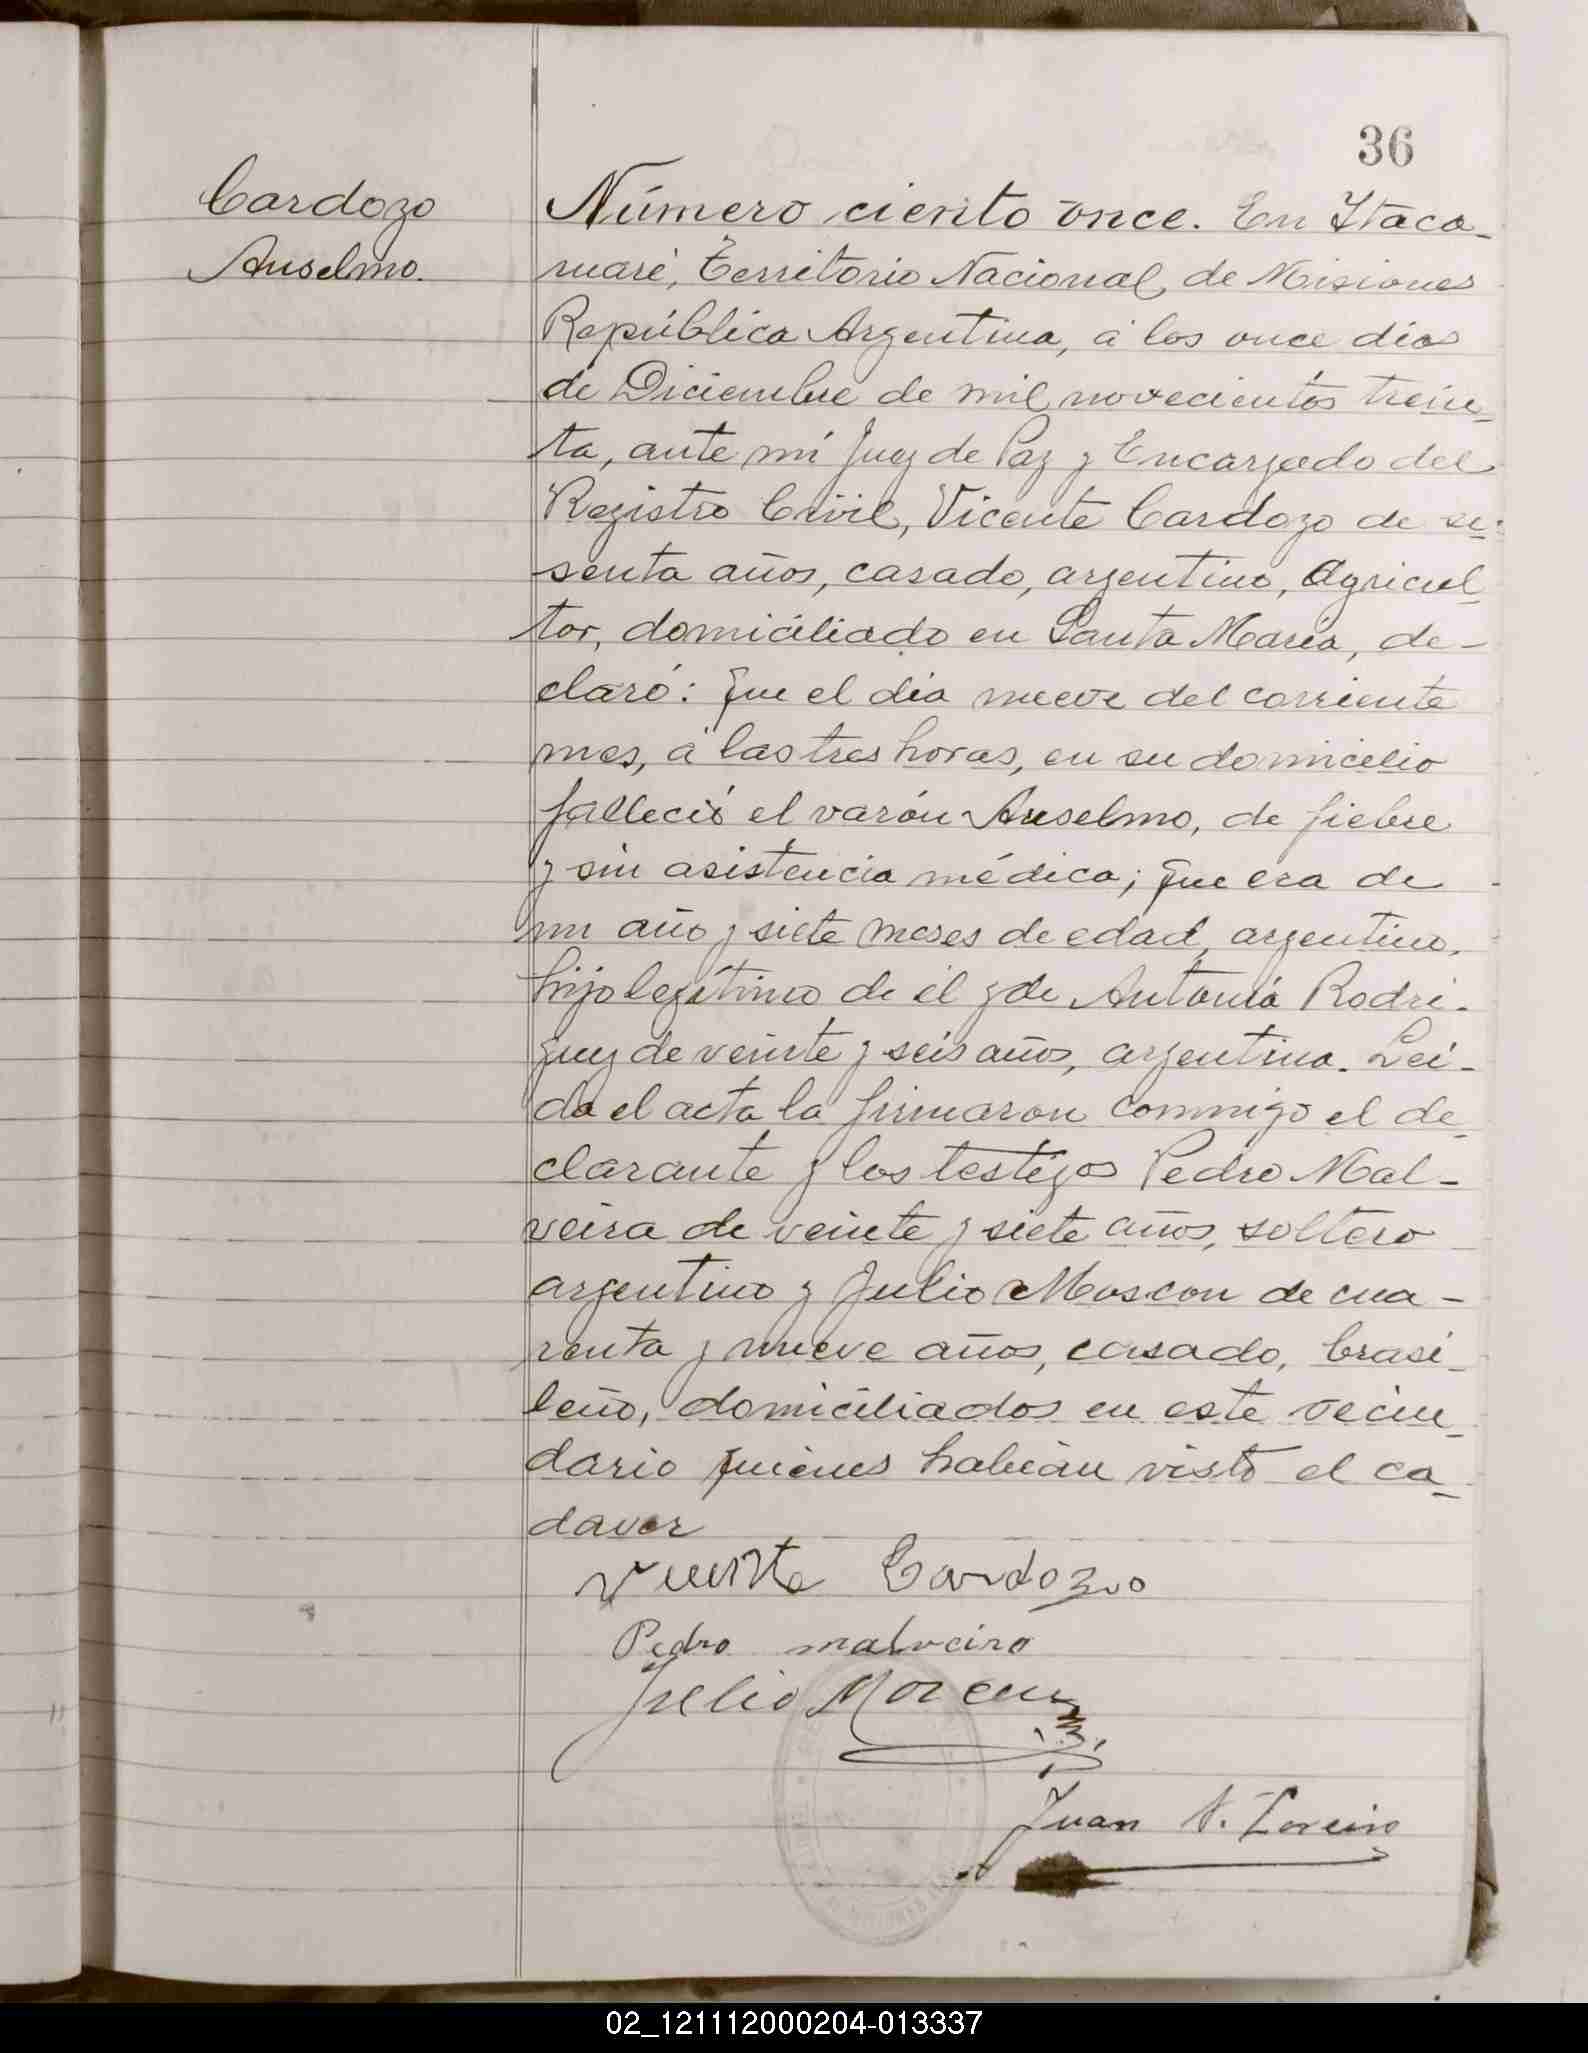 36
Cardozo
Anselmo.
Número ciento once. En Itaca-
ruaré, Territorio Nacional de Misiones
República Argentina, á los once dias
de Diciembre de mil novecientos trein-
ta, ante mi Juez de Paz y Encargado del
Registro Civil, Vicente Cardozo de se-
senta años, casado, argentino, Agricul-
tor, domiciliado en Santa Maria, de-
claró: Que el dia nueve del corriente
mes, á las tres horas, en su domicilio
falleció el varón Anselmo, de fiebre
y sin asistencia médica; que era de
un año y siete meses de edad, argentino,
hijo legítimo de él y de Antonia Rodri-
guez de veinte y seis años, argentina. Lei-
da el acta la firmaron conmigo el de-
clarante y los testigos Pedro Mal-
veira de veinte y siete años, soltero
argentino y Julio Moscon de cua-
renta y nueve años, casado, brasi-
leño, domiciliados en este vecin-
dario quienes habian visto el ca-
daver
Vicente Cardozo
Pedro malveira
Julio
Juan
02_121112000204-013337